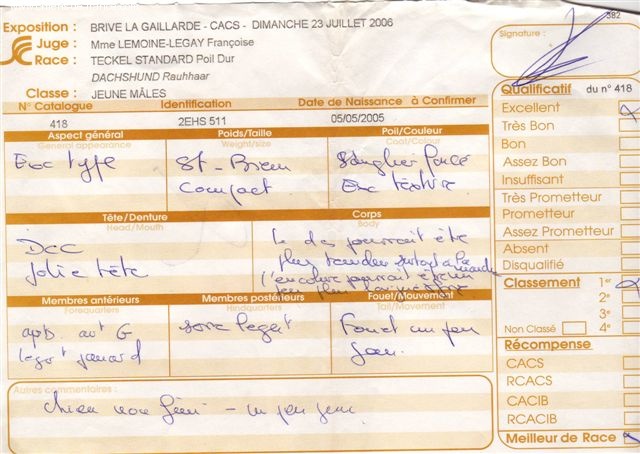 382
Exposition : BRIVE LA GAILLARDE - CACS - DIMANCHE 23 JUILLET 2006
Juge : Mme LEMOINE-LEGAY Françoise
Race : TECKEL STANDARD Poil Dur
DACHSHUND Rauhhaar
Classe : JEUNE MÂLES
Signature :
N° Catalogue Identification Date de Naissance à Confirmer
418 2EHS 511 05/05/2005
Aspect général Poids/Taille Poil/Couleur
General appearance Weight/size Coat/Colour
Exc type St - Bien Sanglier foncé
Compact Exc texture
Tête/Denture Corps
Head/Mouth Body
Dcc le dos pourrait être
Jolie tête plus tendu surtout à la marche
l'encolure pourrait être un
un peu plus
Membres antérieurs Membres postérieurs Fouet/Mouvement
Forequarters Hindquarters Tail/Movement
apb. ant G Fouet un peu
legt panard gai.
Autres commentaires :
chien non fini - un peu jeune
Qualificatif du n° 418
Excellent
Très Bon
Bon
Assez Bon
Insuffisant
Très Prometteur
Prometteur
Assez Prometteur
Absent
Disqualifié
Classement 1er
2e
3e
Non Classé 4e
Récompense
CACS
RCACS
CACIB
RCACIB
Meilleur de Race